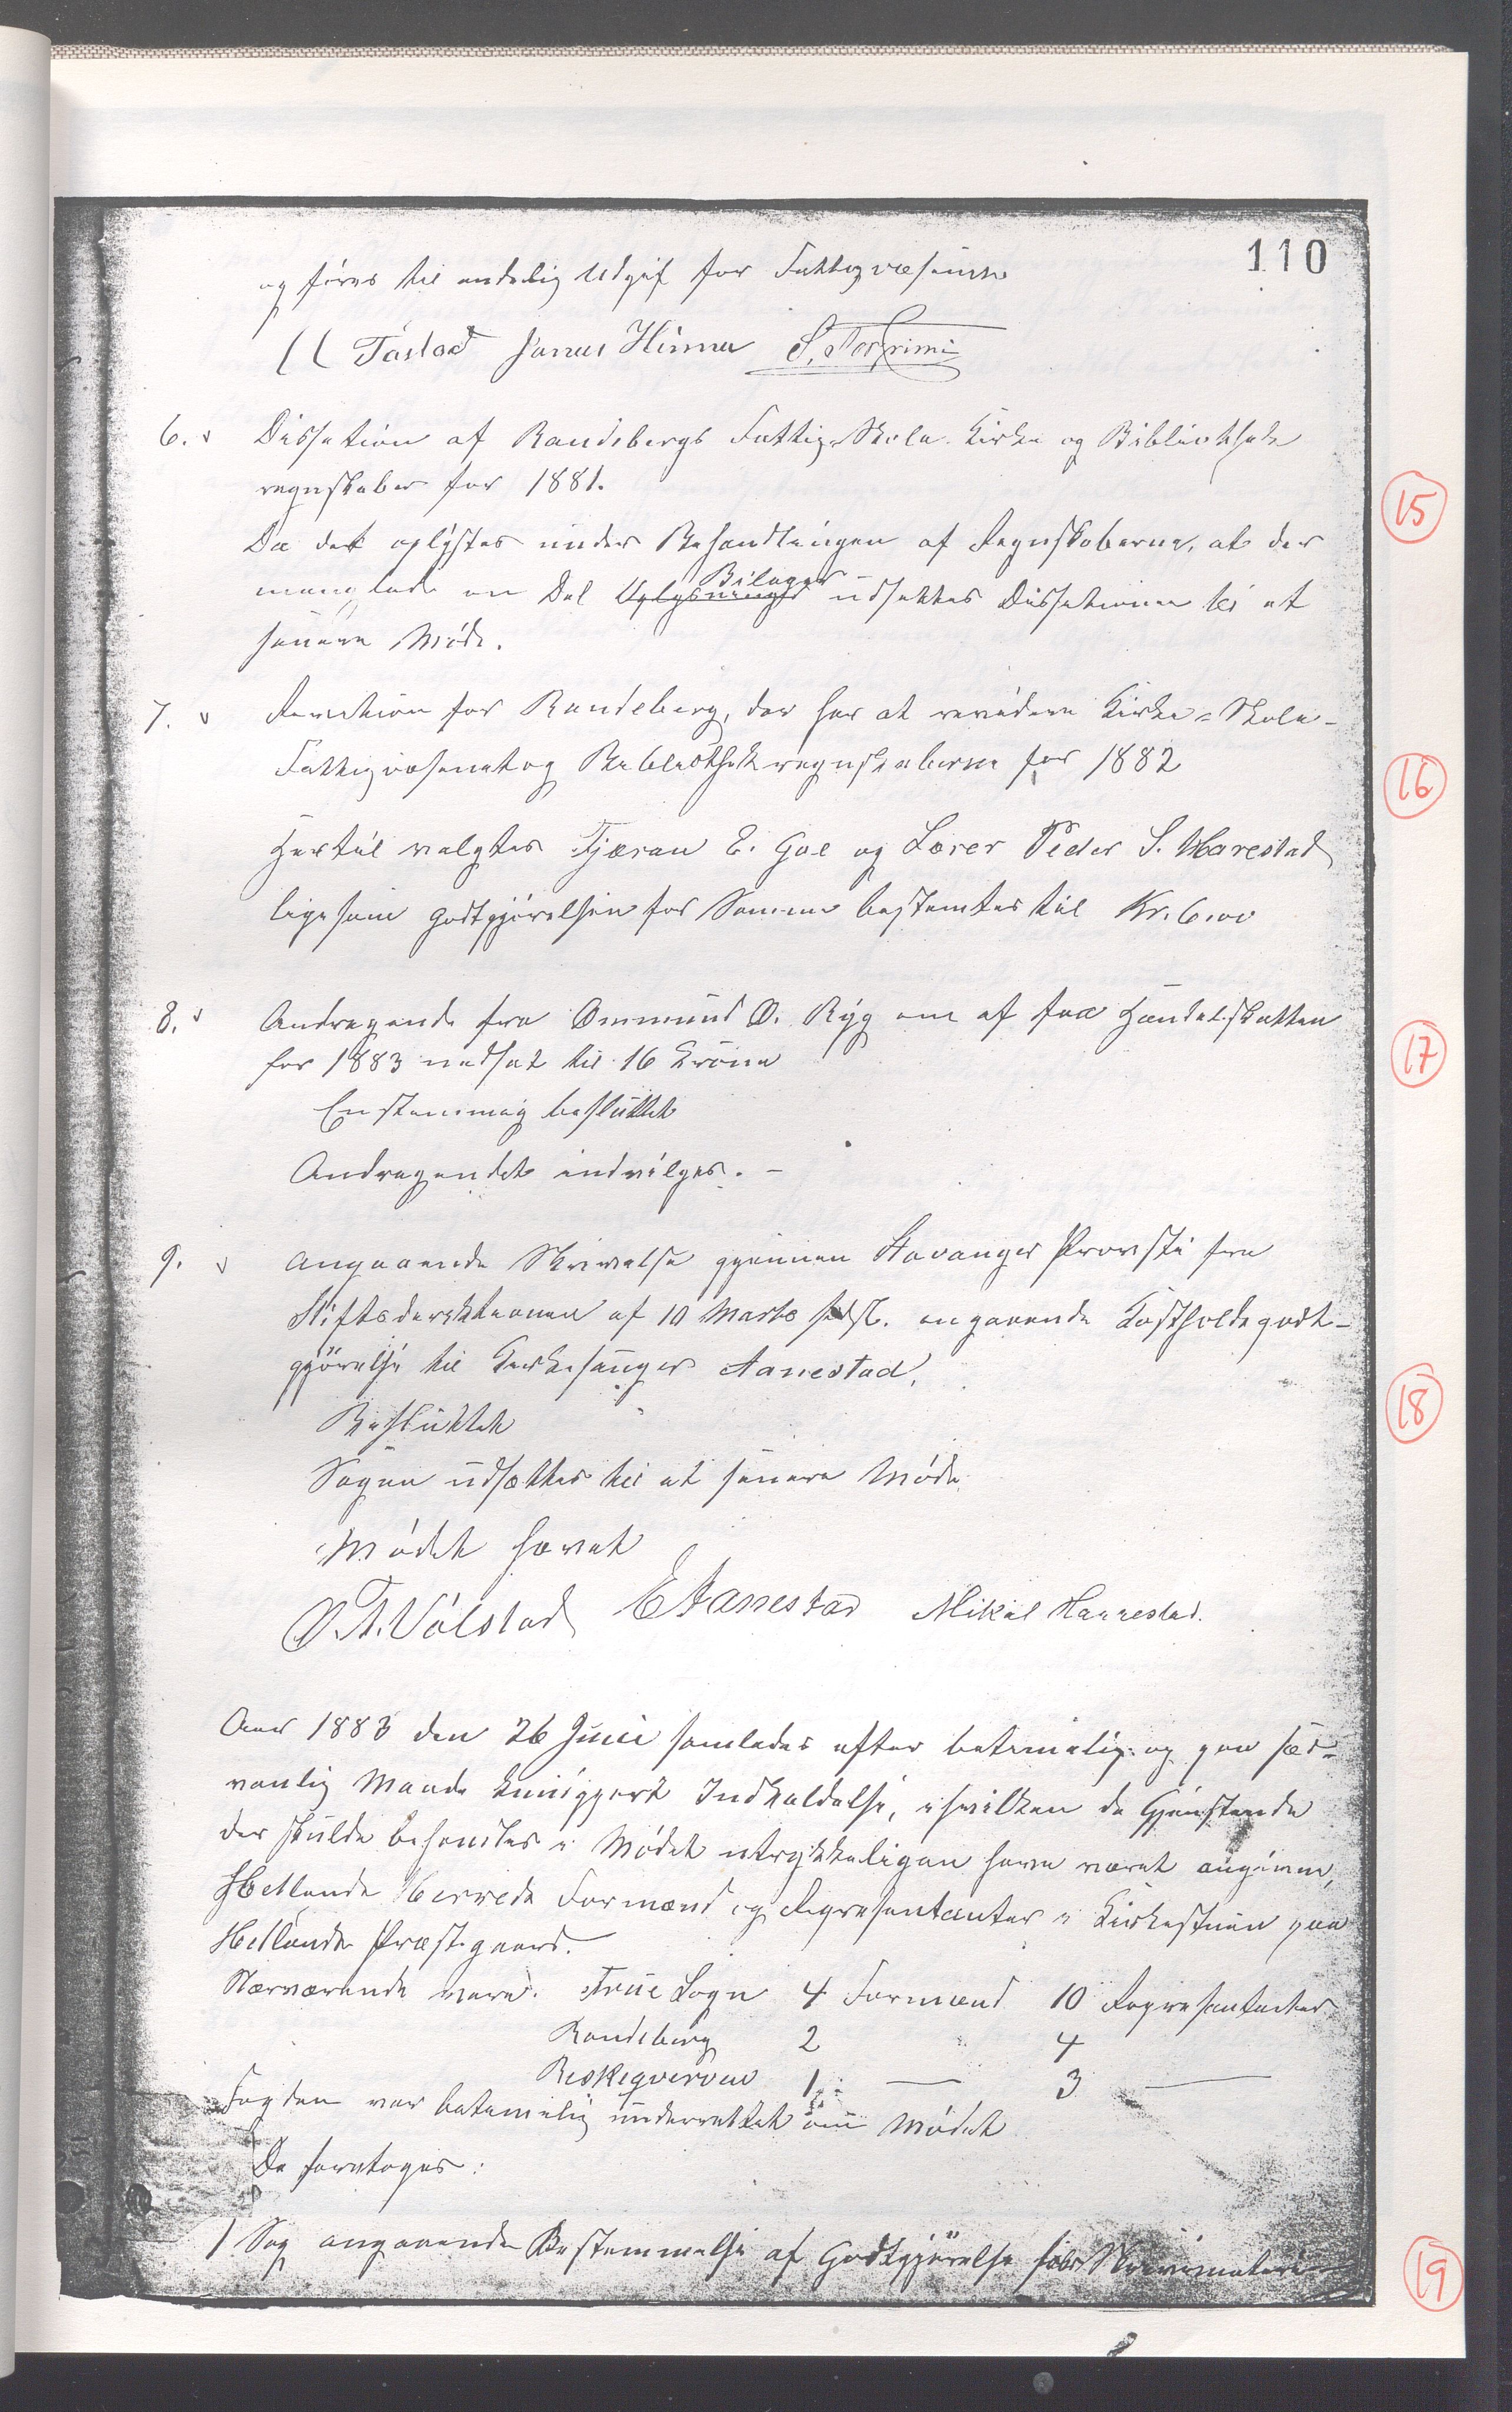 110
og føres til endelig Udgif for Fattigvæsenet
Tastad Jonas Hinna S. Torgrimi
6. v Dissetion af Randebergs Fattig- Skole- Kirke og Bibliothek
regnskaber for 1881.
15
Da det oplystes under Behandlingen af Regnskaberne, at der
Bilager
manglede en Del Oplysninger udsættes Dissetionen til et
senere Møde.
7. v Revition for Randeberg, der har at revidere Kirke- Skole-
Fattigvæsenet og Bibliothekregnskaberne for 1882
16
Hertil valgtes Tjæran E. Goe og Lærer Peder S. Harestad
ligesom Godtgjørelsen for Samme bestemtes til Kr. 6.00
8. v Andragende fra Ommund O. Ryg om at faa Handelsskatten
for 1883 nedsat til 16 Kroner
17
Enstemmig besluttet
Andragendet indvilges. -
9. v Angaaende Skrivelse gjennem Stavanger Provsti fra
Stiftsdirektionen af 10 Marts sidstl. angaaende Kostholdsgodt-
gjørelse til Kirkesanger Aanestad.
18
Besluttet
Sagen udsættes til et senere Møde.
Mødet hævet
O. A. Volstad E Aanestad Mikal Harrestad.
Aar 1883 den 26 Juni samledes efter betimelig og paa sæd-
vanlig Maade kundgjort Indkaldelse, i hvilken de Gjenstande
der skulde behandles i Mødet udtrykkeligen have været angivne,
Hetlands Herreds Formænd og Repræsentanter i Kirkestuen paa
Hetlands Præstegaard.
Nærværende vare. Frue Sogn 4 Formænd 10 Repræsentanter
Randeberg 2 " 4
Riskeqverven 1 — 3 —
Fogden var betimelig underrettet om Mødet
De foretoges:
1 Sag angaaende Bestemmelse af Godtgjørelse for Skrivemateri-
19